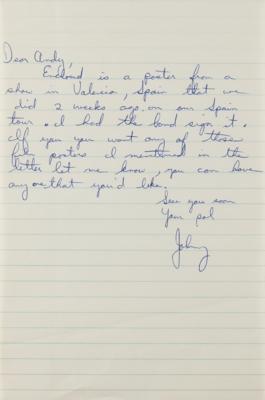 Dear Andy,
Enclosed is a poster from a
show in Valencia, Spain that we
did 2 weeks ago on our Spain
tour. I had the band sign it.
If you you want any of those
posters I mentioned in the
letter let me know, you can have
any one that you'd like.
See you soon
Your pal
Johnny